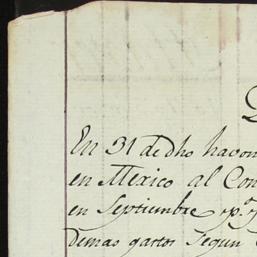 En 31 de dho havon
en Mexico al Con
en Septiembre pr.
demas gastos segun